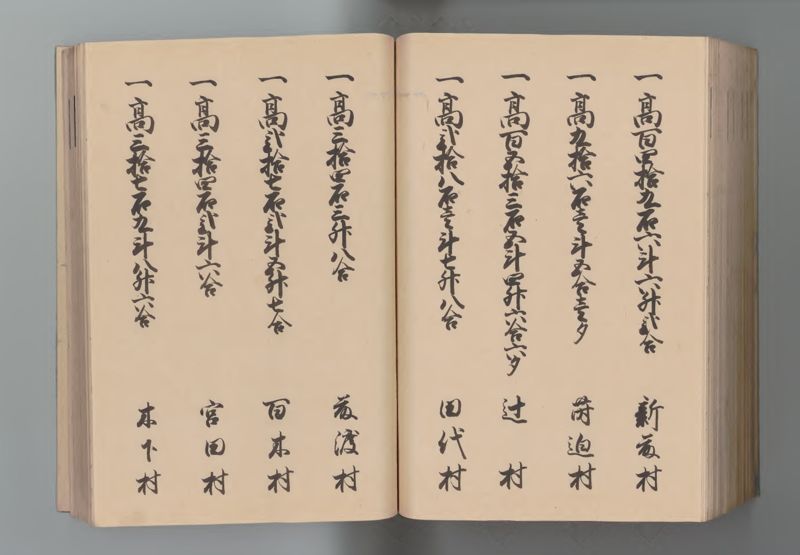 一高百四拾九石六斗六升弐合 新苗村
一高九拾六石壱斗五合壱夕 莇迫村
一高百五拾三石五斗四升六合六夕 辻村
一高弐拾八石壱斗七升八合 田代村
一高三拾四石三升八合 渡村
一高弐拾七石弐斗五升七合 百木村
一高三拾四石弐斗六合 宮田村
一高三拾七石九斗八升六合 木下村